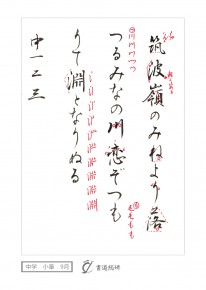 筑波嶺のみねより落
つるみなの川恋ぞつも
りて淵となりぬる
中一二三
中学 小筆 9月
書道総研